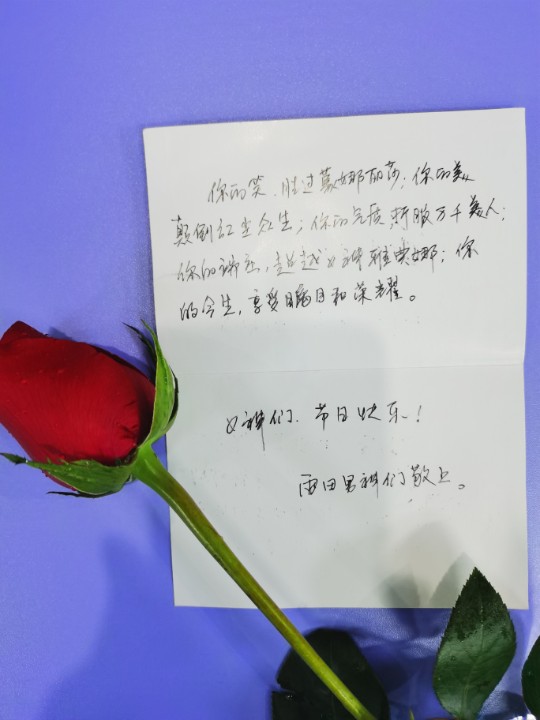 你的笑,胜过蒙娜丽莎;你的美
颠倒红尘众生;你的气质折服万千美人;
你的,超越女神雅典娜;你
的今生,享受瞩目和荣耀。
女神们,节日快乐!
雨田男神们敬上。